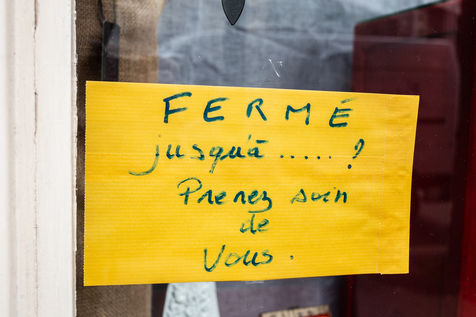 FERMÉ
jusqu'à ..... ?
Prenez soin
de
Vous.